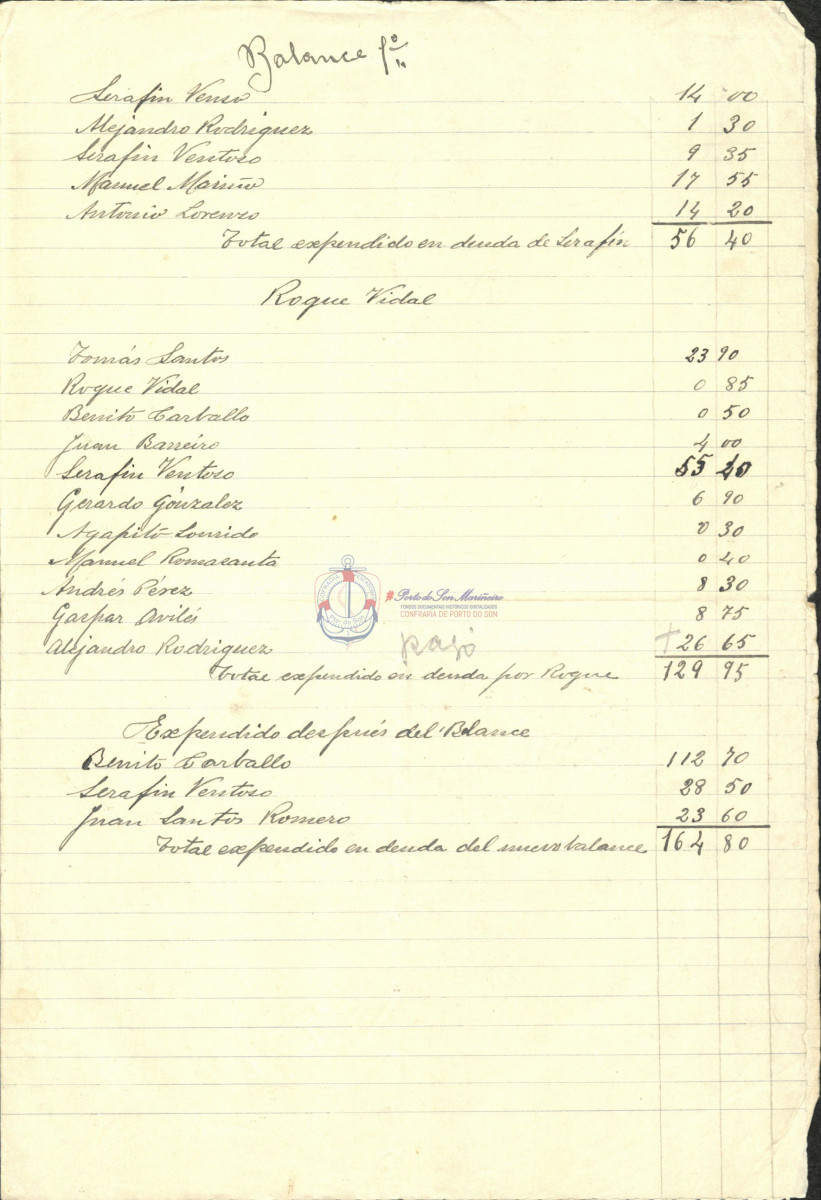 Balance fº
Serafin Venso 14 00
Alejandro Rodriguez 1 30
Serafin Ventoso 9 35
Manuel Mariño 17 55
Antonio Lorenzo 14 20
Total expendido en deuda de Serafín 56 40
Roque Vidal
Tomás Santos 23 90
Roque Vidal 0 85
Benito Carballo 0 50
Juan Barreiro 4 00
Serafin Ventoso 55 40
Gerardo Gónzalez 6 90
Agapito Lourido 0 30
Manuel Romacanta 0 40
Andrés Pérez 8 30
Gaspar Avilés 8 75
Alejandro Rodriguez pagó 26 65
Total expendido en deuda por Roque 129 95
Expendido después del Balance
Benito Carballo 112 70
Serafin Ventoso 28 50
Juan Santos Romero 23 60
Total expendido en deuda del nuevo balance 164 80
Pto. do Son
#Porto do Son Mariñeiro
FONDOS DOCUMENTAIS HISTÓRICOS DIXITALIZADOS
CONFRARIA DE PORTO DO SON